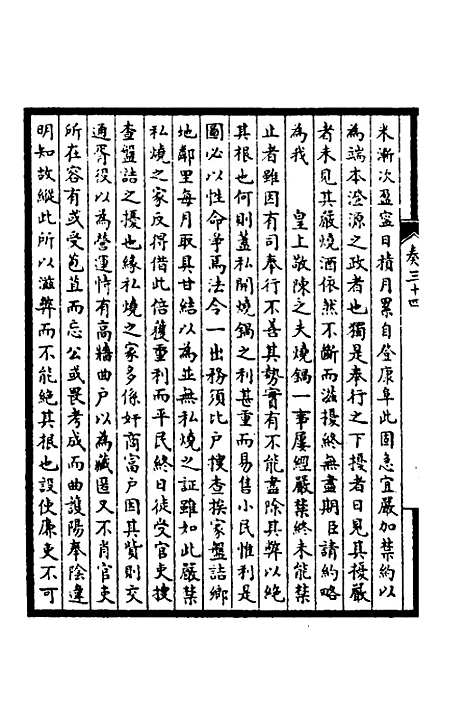 奏三十四
米漸次盈寧日積月累自登康阜此固急宜嚴加禁約以
為端本澄源之政者也獨是奉行之下擾者日見其擾嚴
者未見其嚴燒酒依然不斷而滋擾終無盡期臣請約略
為我　皇上敬陳之夫燒鍋一事屢經嚴禁終未能禁
止者雖因有司奉行不善其勢實有不能盡除其弊以絶
其根也何則蓋私開燒鍋之利甚重而易售小民惟利是
圖必以性命爭焉法令一出務須比戶搜查挨家盤詰鄉
地鄰里每月取具甘結以為並無私燒之証雖如此嚴禁
私燒之家反得借此倍獲重利而平民終日徒受官吏搜
查盤詰之擾也緣私燒之家多係奸商富戶因其貲則交
通胥役以為營運恃有高牆曲戶以為藏匿又不肖官吏
所在容有或受苞苴而忘公或畏考成而曲護陽奉陰違
明知故縱此所以滋弊而不能絶其根也設使廉吏不可